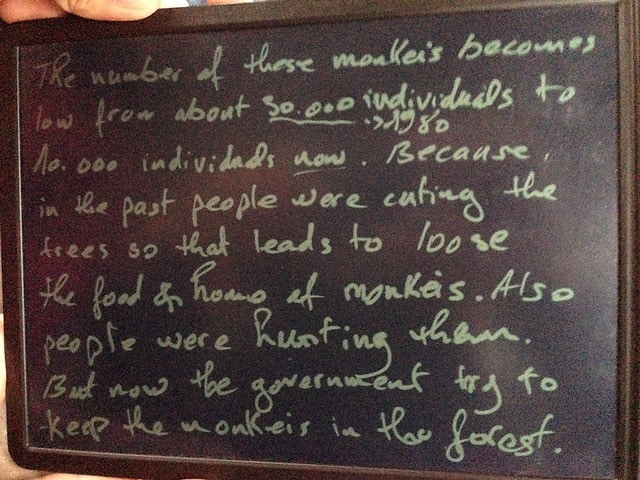 The number of these monkeis becomes
low from about 30.000 individuals to
->1980
10.000 individuals now. Because,
in the past people were cuting the
trees so that leads to loose
the food & home of monkeis. Also
people were hunting them.
But now the government try to
keep the monkeis in the forest.